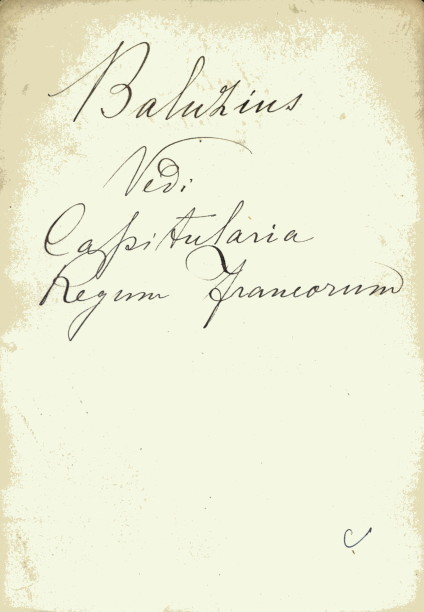 Baluzius
Vedi
Capitularia
Regum Francorum